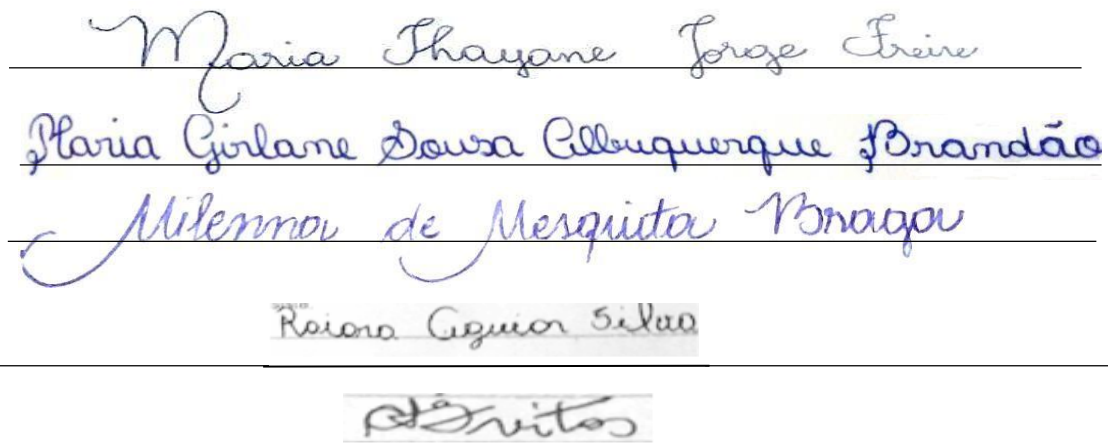 Maria Thayane Jorge Freire
Maria Girlane Sousa Albuquerque Brandão
Milenna de Mesquita Braga
Raiara Aguiar Silva